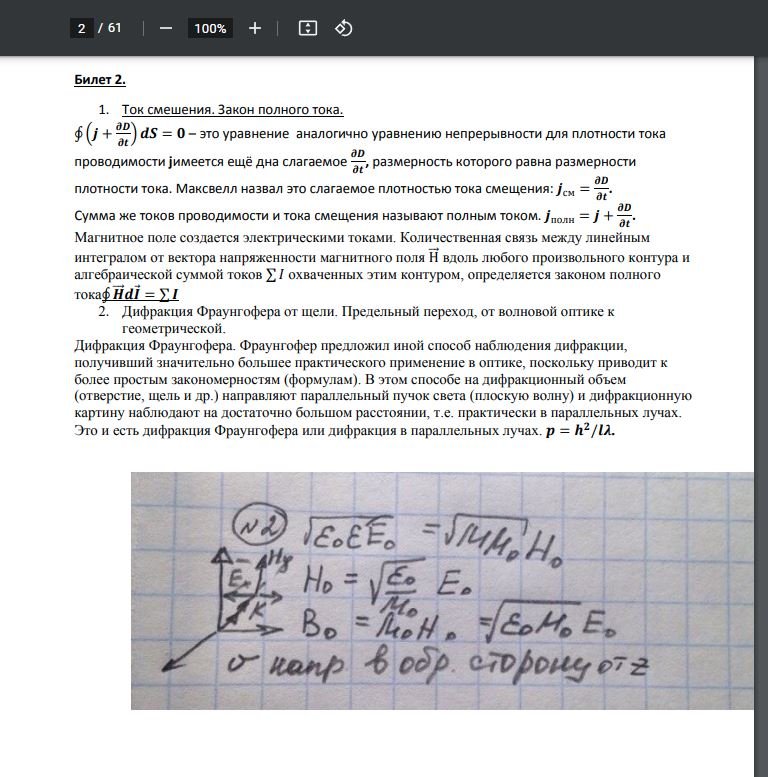 2 / 61 — 100% +
Билет 2.
1. Ток смешения. Закон полного тока.
∮(j + ∂D/∂t) dS = 0 – это уравнение аналогично уравнению непрерывности для плотности тока
проводимости jимеется ещё дна слагаемое ∂D/∂t, размерность которого равна размерности
плотности тока. Максвелл назвал это слагаемое плотностью тока смещения: jсм = ∂D/∂t.
Сумма же токов проводимости и тока смещения называют полным током. jполн = j + ∂D/∂t.
Магнитное поле создается электрическими токами. Количественная связь между линейным
интегралом от вектора напряженности магнитного поля H⃗ вдоль любого произвольного контура и
алгебраической суммой токов ∑I охваченных этим контуром, определяется законом полного
тока∮H⃗dl⃗ = ∑I
2. Дифракция Фраунгофера от щели. Предельный переход, от волновой оптике к
геометрической.
Дифракция Фраунгофера. Фраунгофер предложил иной способ наблюдения дифракции,
получивший значительно большее практического применение в оптике, поскольку приводит к
более простым закономерностям (формулам). В этом способе на дифракционный объем
(отверстие, щель и др.) направляют параллельный пучок света (плоскую волну) и дифракционную
картину наблюдают на достаточно большом расстоянии, т.е. практически в параллельных лучах.
Это и есть дифракция Фраунгофера или дифракция в параллельных лучах. p = h²/lλ.
№2 √ε₀ε E₀ = √μμ₀ H₀
H₀ = √ε₀/μ₀ E₀
B₀ = μ₀H₀ = √ε₀μ₀ E₀
υ напр. в обр. сторону от z